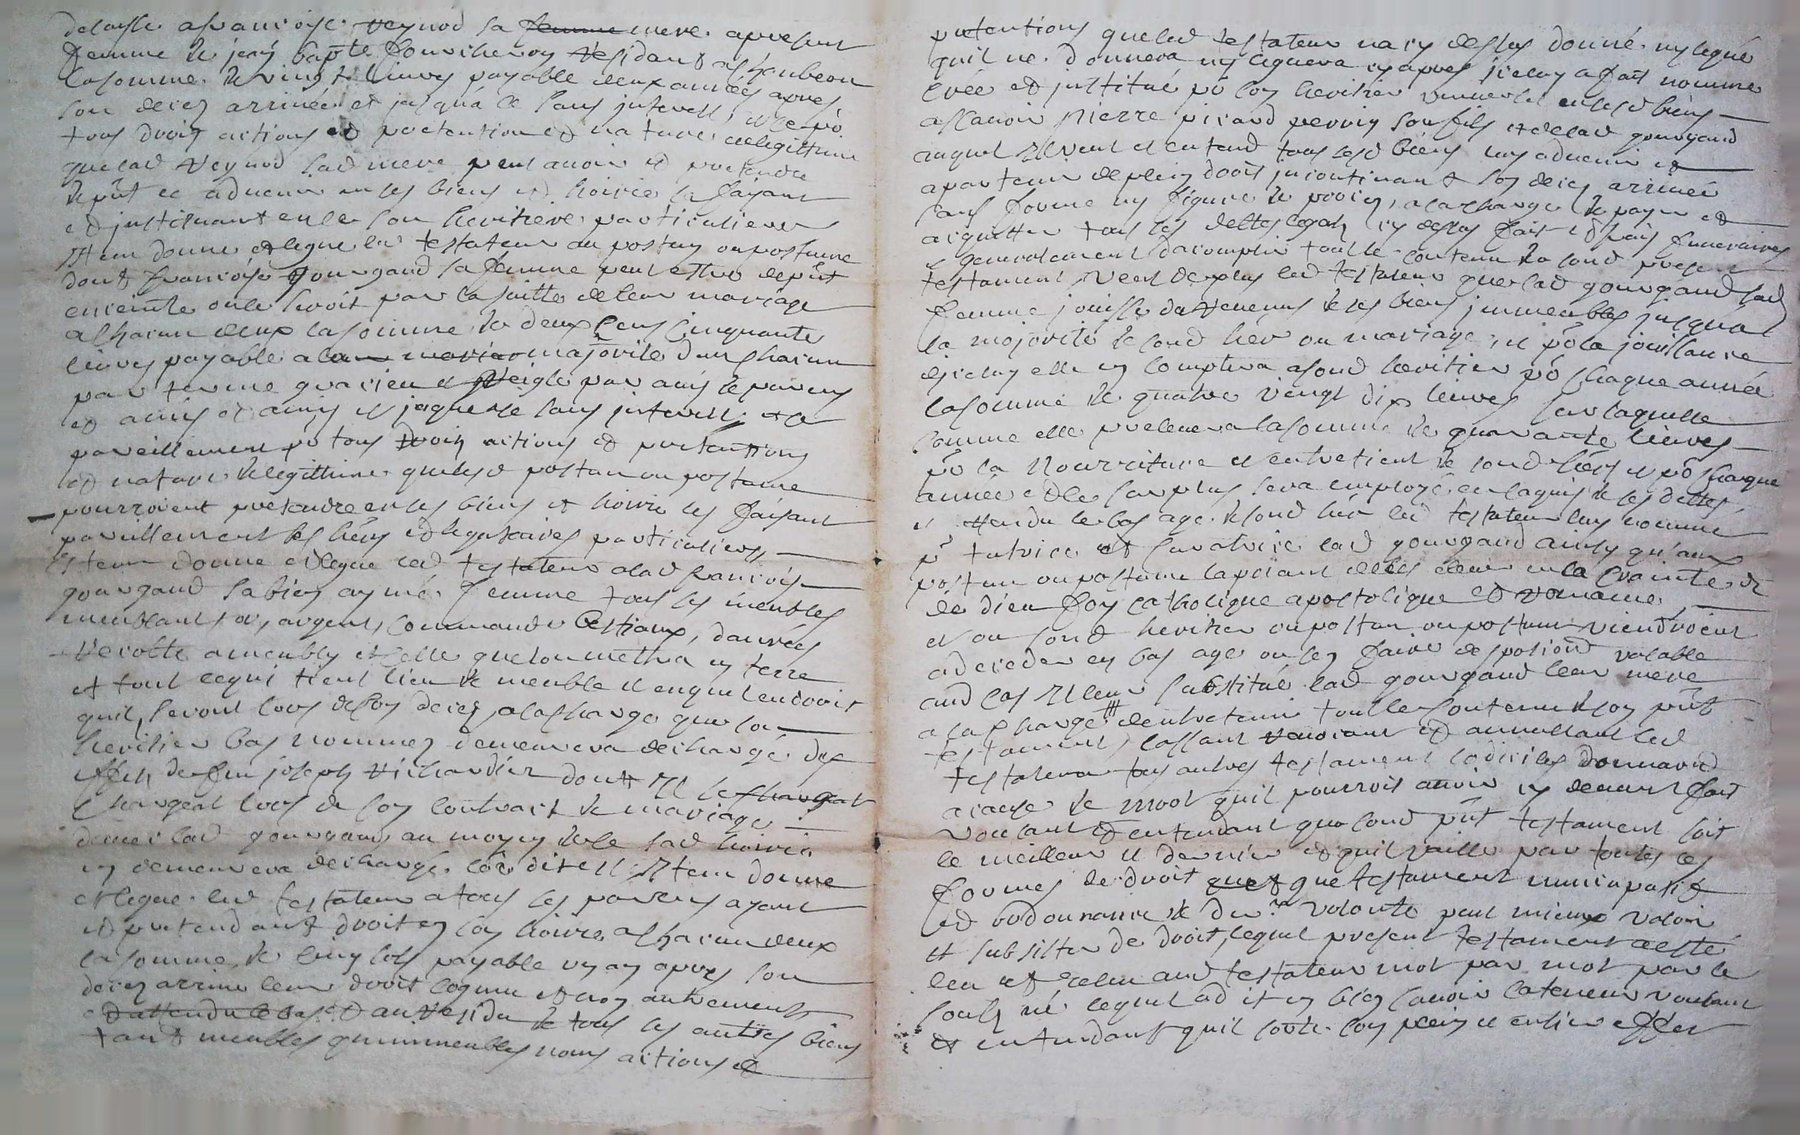 delaisse a francoise Veynod sa femme mere apresent
femme de jean bapte fonvilleron residant a chambeon
la somme de vingt livres payable deux années apres
son deces arrivée et jusqu'a ce sans interests, et ce po
tous droits actions et pretentions et nature delegittime
que lad Veynod sad mere peut avoir et pretendre
de put et advenir en ses biens et hoirie la faisant
et justituant en ce son heritiere particuliere
Item donne et legue led testateur au postum ou postume
dont francoise gourgaud sa femme peut estre de put
enceinte ou le seroit par la suitte de leur mariage
a chacun deux la somme de deux cens cinquante
livres payable a leur mariage majorité d'un chacun
par terme qui sera reiglé par avis de parens
et amis et jusque ce sans interest et ce
pareillement po tous droits actions et pretentions
et nature delegittime que lesd postum ou postume
pourroient pretendre en ses biens et hoirie les faisant
pareillement ses hers et legataires particuliers
Item donne et legue led testateur a lad francoise
gourgaud sa bien aymé femme tous les meubles
meublant, or, argent, commande bestiaux, danrées
recolte ameubly et celle que l'on mettra en terre
et tout ce qui tient lieu de meuble et en quel endroit
quil seront lors de son deces, a la charge que son
heritier bas nommez demeurera dechargé des
effets de feu joseph Richardier dont Il se chargeat
chargeat lors de son contract de mariage
avec lad gourgaud au moyen de ce sad hoirie
en demeurera dechargé comme dit est Item donne
et legue led testateur a tous les parens ayant
et pretendant droit en son hoirie a chacun deux
la somme de cinq sols payable un an apres son
deces arrivé leur droit cognu et non autrement
et attendu le bas et au residu de tous ses autres biens
tant meubles qu'immeubles noms actions et
pretentions que led testateur na cy dessus donné ny legué
quil ne donnera ny leguera cy apres jceluy a fait nommé
créé et justitué po son heritier universel en sesd biens
assavoir pierre picard perrin son fils et de lad gourgaud
auquel Il veut et entend tous sesd biens luy advenir et
apartenir de plein droit jncontinant son deces arrivée
sans forme ny figure de proces, a la charge de payer et
acquitter tous ses dettes legats cy dessus fait et frais funeraires
et generalement d'acomplir tout le contenu en sond present
testament, Veut de plus led testateur que lad gourgaud sad
femme jouisse des revenus de ses biens jmmeubles jusqu'a
la majorité de sond her ou mariage, et po la jouissance
djceluy elle en comptera asond heritier po chaque année
la somme de quatre vingt dix livres sur laquelle
somme elle prelevera la somme de quarante livres
po la nourriture et entretient de sond hers et po chaque
année et le surplus sera employé en l'aquis de ses dettes
et attendu le bas age de sond her led testateur luy nomme
po tutrice et curatrice lad gourgaud ainsy qu'aux
postum ou postume la priant de les elever en la crainte
de dieu foy catholique apostolique et romaine
et ou sond heritier ou postum ou postume viendroient
a deceder en bas age ou sen faire disposiond valable
aud cas Il leur substitue lad gourgaud leur mere
a la charge d'entretenir tout le contenu de son put
testament, cassant revocant et annullant led
testateur tous autres testament codiciles donnaond
a cause de mort quil pourroit avoir cy devant fait
voulant et entendant que sond put testament soit
le meilleur et dernier et quil vaille par toutes les
formes de droit que testament nuncupatif
et ordonnance de derre volonté peut mieux valoir
et subsister de droit, lequel present testament a esté
leu et releu aud testateur mot par mot par le
soubz né lequel a dit en bien scavoir la teneur voulant
et entendant quil sorte son plein et entier effet